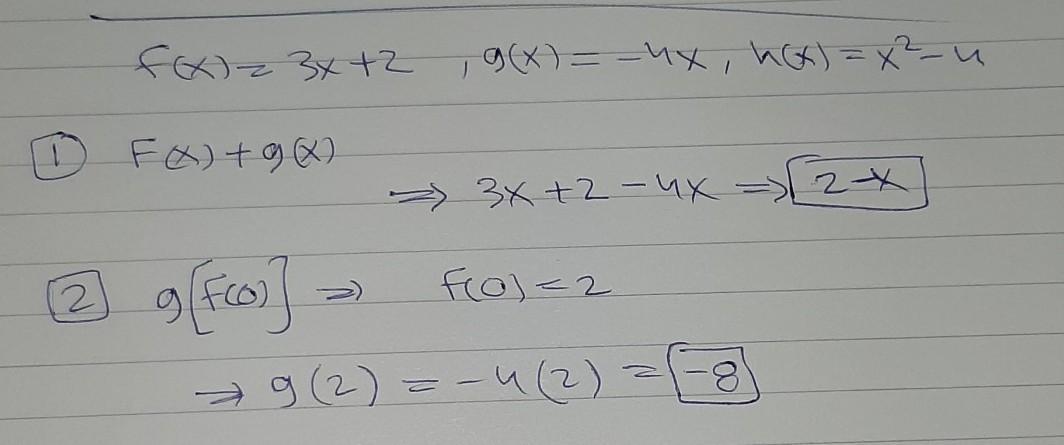 f(x) = 3x + 2 , g(x) = -4x , h(x) = x² - 4
1 F(x) + g(x)
⇒ 3x + 2 - 4x ⇒ 2-x
2 g[f(0)] ⇒ f(0) = 2
→ g(2) = -4(2) = -8